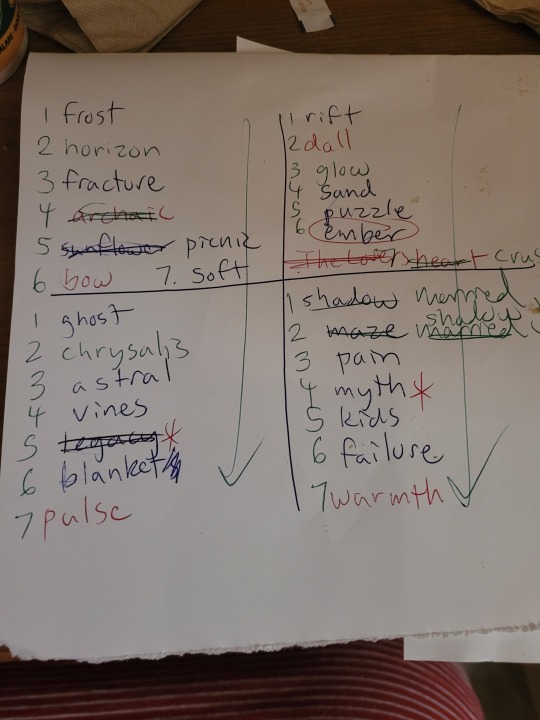 1 frost
2 horizon
3 fracture
4 archaic
5 sunflower picnic
6 bow 7. Soft
1 rift
2 dall
3 glow
4 Sand
5 puzzle
6 ember
The Lovers heart
1 ghost
2 chrysalis
3 astral
4 vines
5 legacy *
6 blanket
7 pulse
1 shadow
shadow
2 maze married
3 pain
4 myth *
5 kids
6 failure
7 warmth